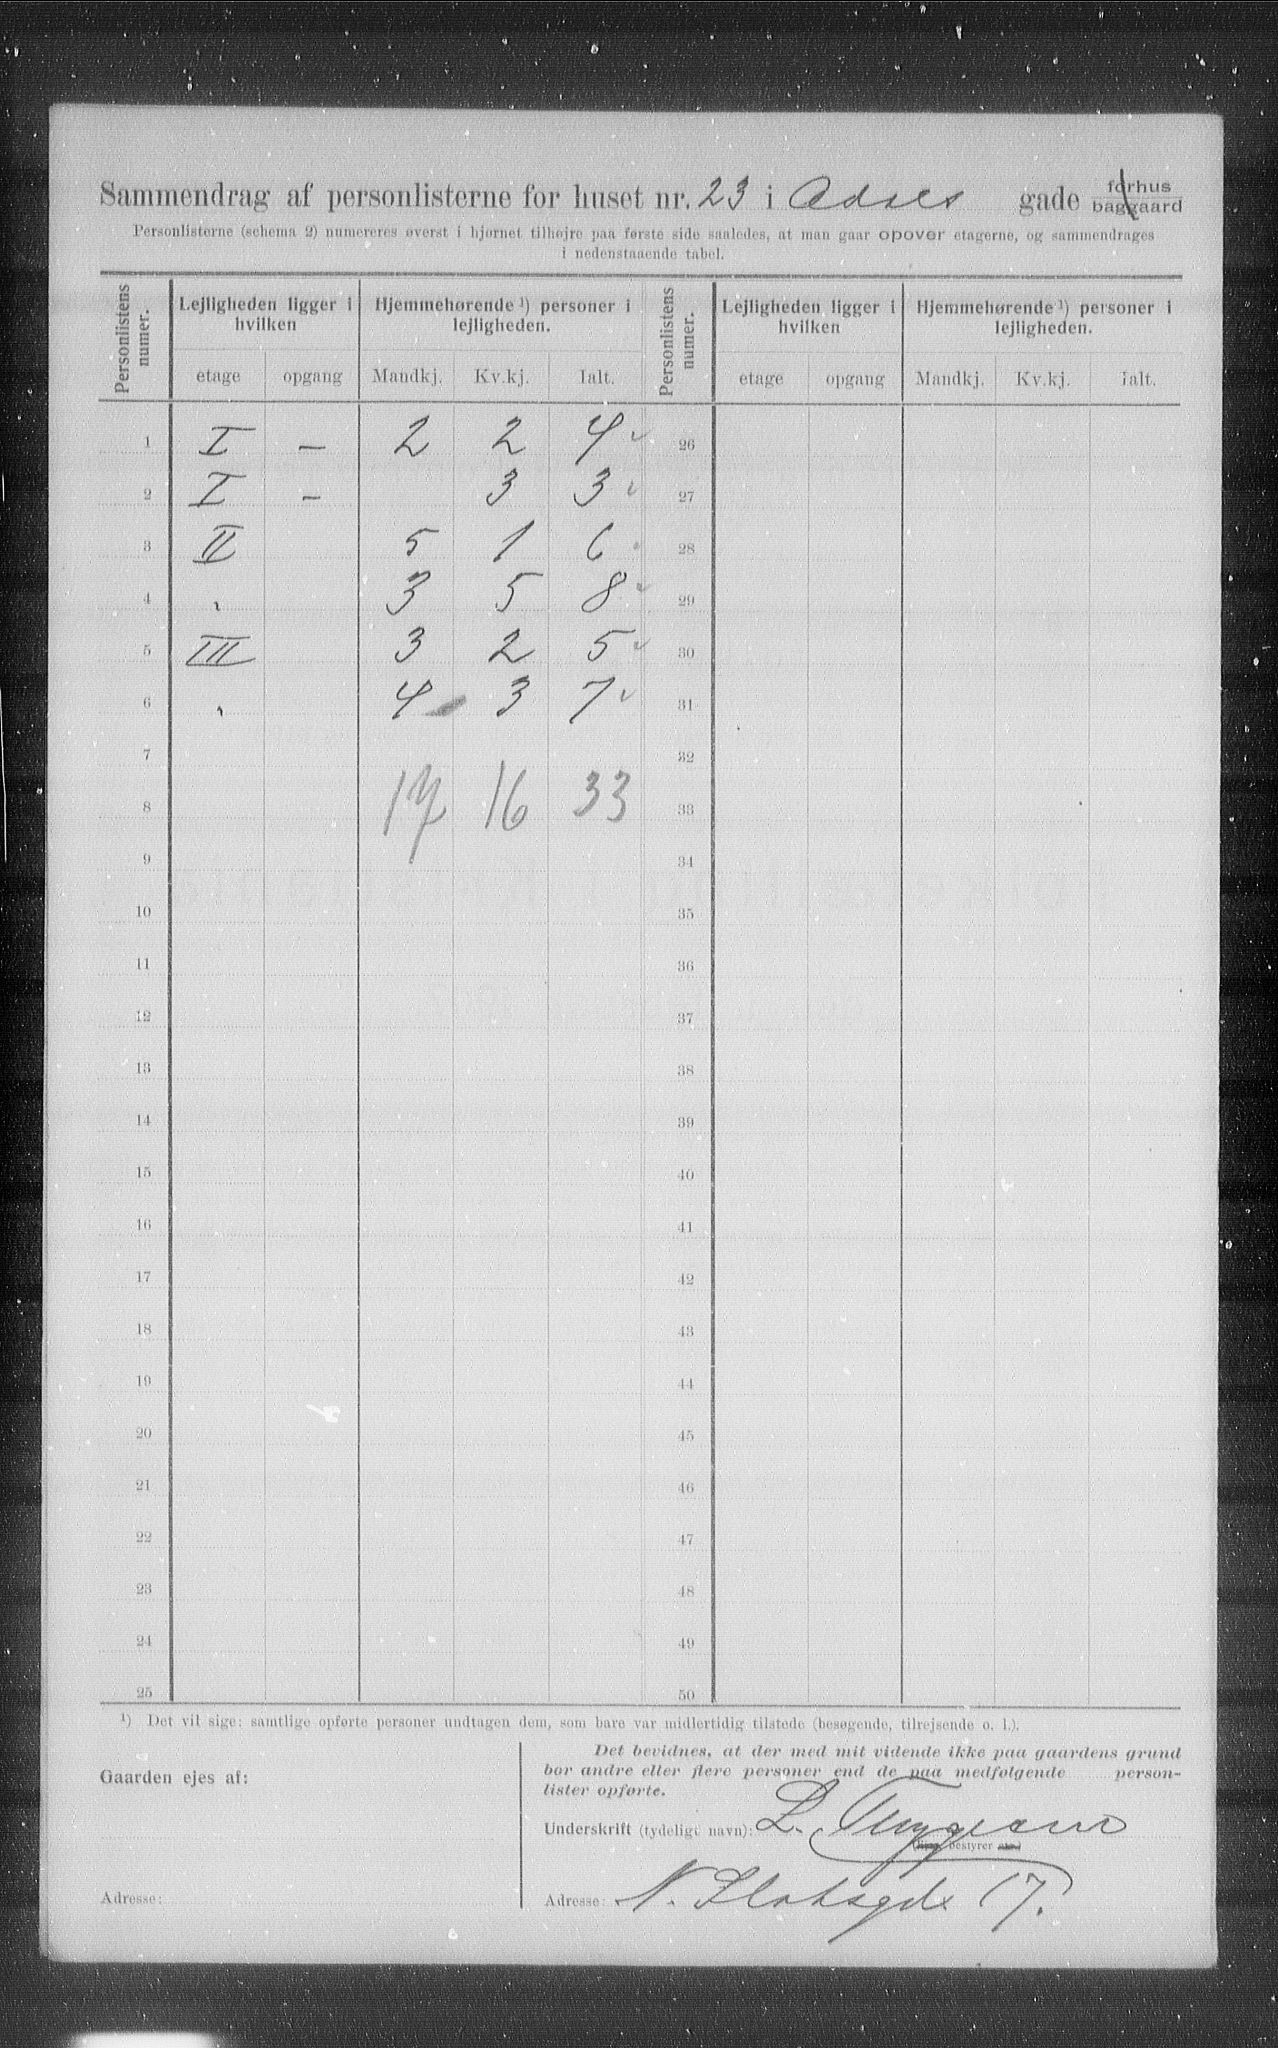 Sammendrag af personlisterne for huset nr. 23 i Adels gade forhus baggaard
Personlisterne (schema 2) numereres øverst i hjørnet tilhøjre paa første side saaledes, at man gaar opover etagerne, og sammendrages
i nedenstaaende tabel.
Personlistens numer. Lejligheden ligger i hvilken Hjemmehørende ¹) personer i lejligheden. Personlistens numer. Lejligheden ligger i hvilken Hjemmehørende ¹) personer i lejligheden.
etage opgang Mandkj. Kv.kj. Ialt. etage opgang Mandkj. Kv.kj. Ialt.
1 I – 2 2 4 26
2 I – 3 3 27
3 II 5 1 6 28
4 " 3 5 8 29
5 III 3 2 5 30
6 " 4 3 7 31
7 32
8 17 16 33 33
9 34
10 35
11 36
12 37
13 38
14 39
15 40
16 41
17 42
18 43
19 44
20 45
21 46
22 47
23 48
24 49
25 50
¹) Det vil sige: samtlige opførte personer undtagen dem, som bare var midlertidig tilstede (besøgende, tilrejsende o. l.).
Det bevidnes, at der med mit vidende ikke paa gaardens grund
bor andre eller flere personer end de paa medfølgende person-
lister opførte.
Gaarden ejes af:
Underskrift (tydeligt navn): L.
bestyrer
Adresse:
Adresse: N. Slotsgd. 17.